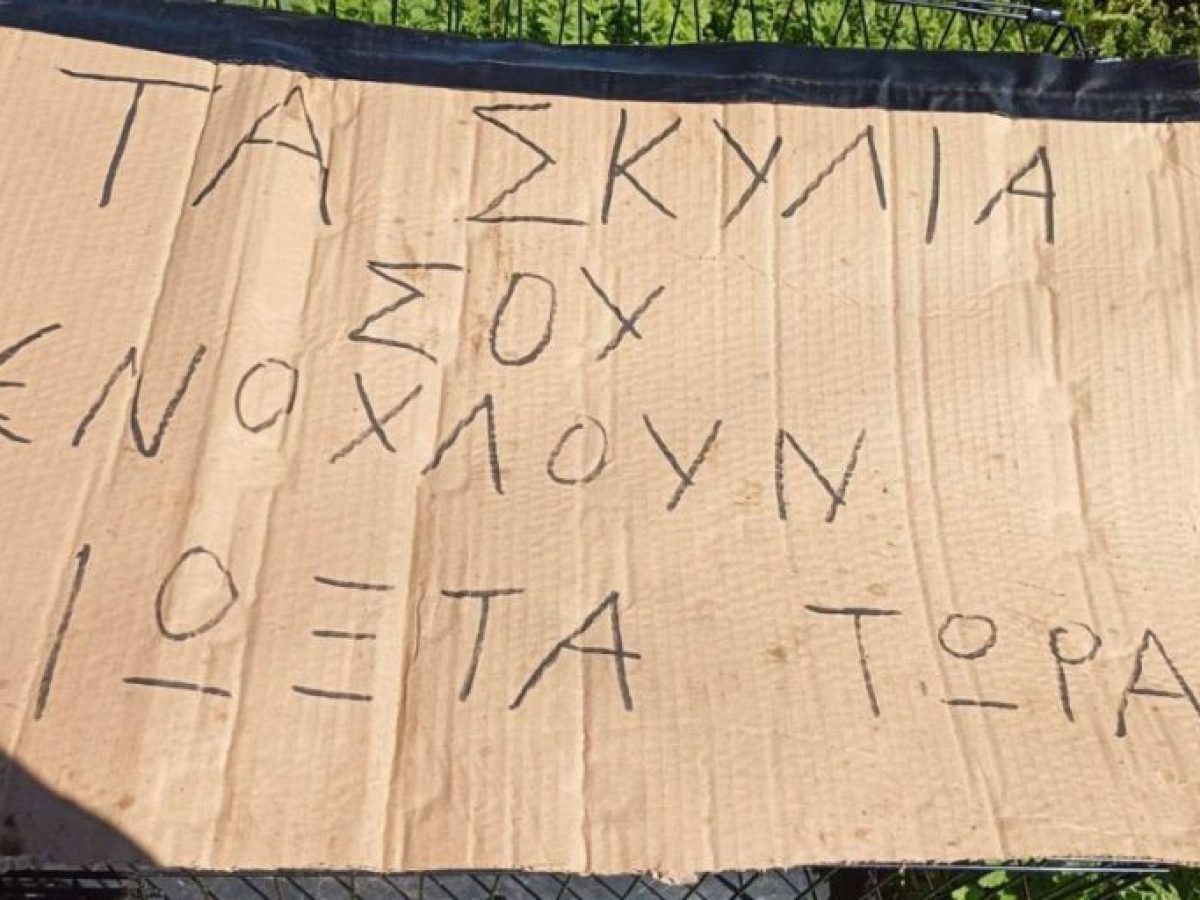 ΤΑ ΣΚΥΛΙΑ
ΣΟΥ
ΕΝΟΧΛΟΥΝ
ΙΩΞΤΑ ΤΩΡΑ